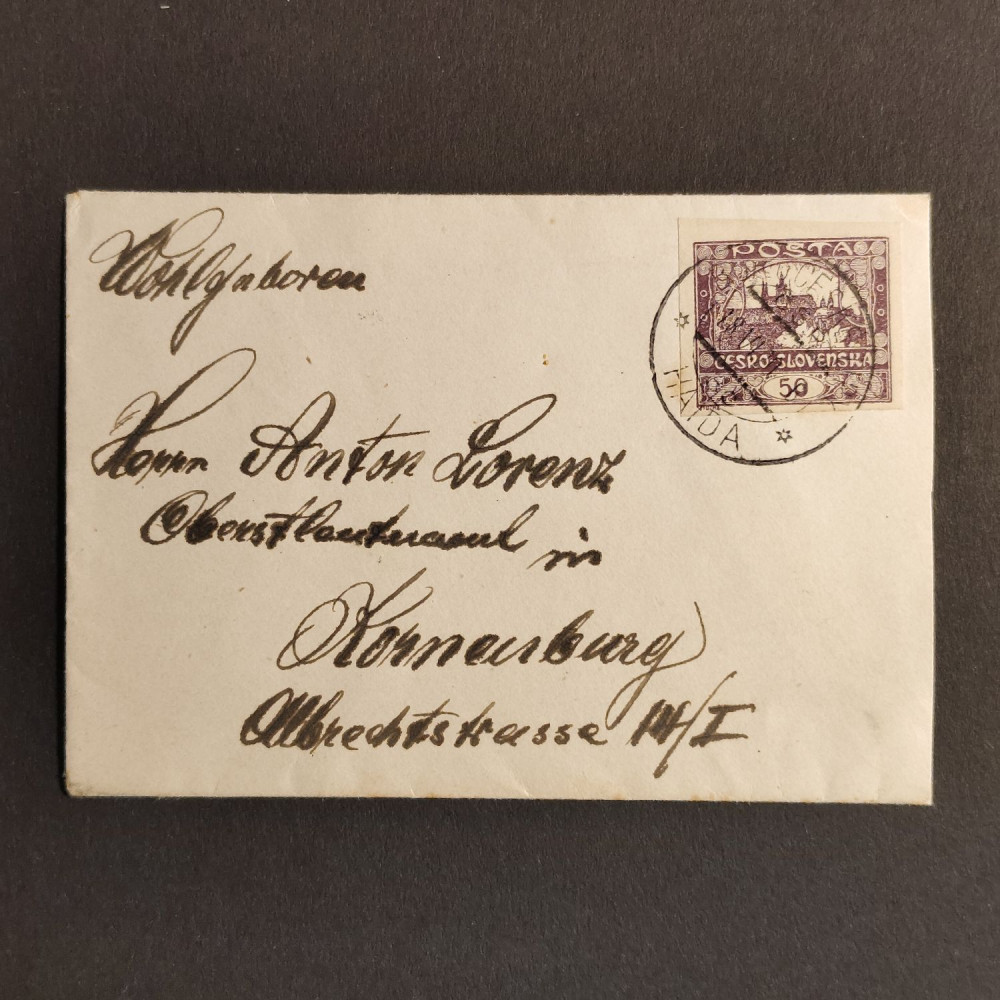 Wohlgeboren
Herrn Anton Lorenz
Oberstleutnant in
Korneuburg
Albrechtstrasse
POSTA
ČESKO-SLOVENSKA
50
HAIDA